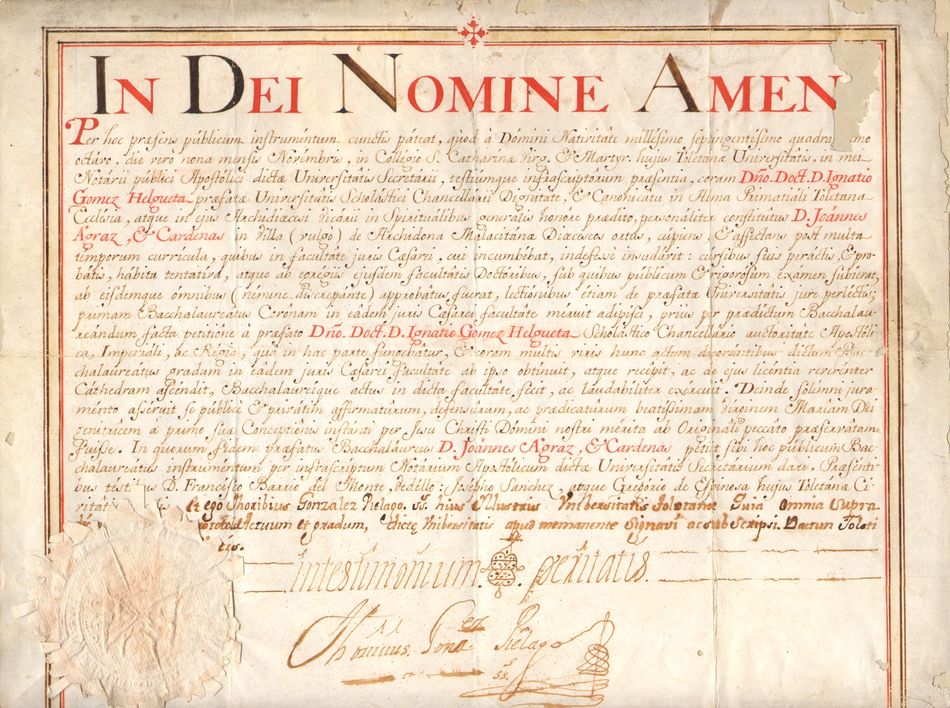 IN DEI NOMINE AMEN
Per hoc præsens públicum instrumentum cunctis páteat, quòd à Dómini Nativitáte millésimo septingentésimo quadra
octávo, die verò nona mensis Novémbris, in Collegio S. Catharinæ Virg. & Martyr. hujus Toletanæ Universitátis, in mei
Notárii públici Apostólici dictæ Universitátis Secretárii, testiumque infrascriptorum præsentia, coram Dño. Doct. D. Ignatio
Gomez Helgueta præfatæ Universitatis Scholástici Chancellárii Dignitate, & Canonicatu in Alma Primatiali Toletana
Ecclésia, atque in ejus Archidiœcesi Vicárii in Spirituálibus generalis honóre prædito, personáliter constitútus D. Joánnes
Agraz, & Cardenas in Villa (vulgò) de Archidona Malacitánæ Diœceseos ortus, cúpiens, & afféctans post multa
témporum currícula, quibus in facultáte juris Cæsárei, cui incumbébat, indeféssè insudárit: cúrsibus suis peráctis, & pro-
bátis, hábita tentatíva, atque ab egrégiis ejúsdem facultátis Doctóribus, sub quibus públicum & rigorósum exámen subíerat,
ab eisdemque ómnibus (némine discrepánte) approbátus fúerat, lectiónibus étiam de præfatæ Universitátis jure perléctis;
primam Bacchalaureátus Corónam in eádem juris Cæsárei facultáte méruit adipísci, prius per prædictum Bacchalau-
reándum facta petitióne à præfato Dño. Doct. D. Ignatio Gomez Helgueta Scholástico Chancellário auctoritáte Apostóli-
ca, Imperiali, ac Régia, qua in hac parte fungebátur, & coram multis viris hunc actum decorántibus dictum Bac-
chalaureatus gradum in eádem juris Cæsárei facultáte ab ipso obtínuit, atque recépit, ac de ejus licentia reverénter
Cáthedram ascéndit, Bacchalaureíque actus in dicta facultáte fecit, ac laudabíliter exércuit. Deínde solémni jura-
ménto asséruit se públicè & privátim affirmatúrum, defensúrum, ac prædicatúrum beatíssimam Vírginem Maríam Dei
genitrícem à primo suæ Conceptiónis instánti per Jesu Christi Dómini nostri mérita ab Originali peccáto præservátam
fuísse. In quorum fidem præfatus Bacchalaureus D. Joánnes Agraz, & Cardenas pétiit sibi hoc públicum Bac-
chalaureátus instrumentum per infrascriptum Notárium Apostólicum dictæ Universitátis Secretárium dari. Præsénti-
bus téstibus D. Francisco Barrio del Monte, Bedéllo: Joséphio Sanchez, atque Gregório de Espinosa hujus Toletánæ Ci-
vitát Et ego Thoribius Gonzalez Pielago. SS. hius Illustris Vniversitatis Toletanæ Quia omnia supra
Actuum et gradum, Vnibersitatis apud memanente signavi ac subscripsi. Datum Toleti
intestimonium. Veritatis.
Thorivius Gonz Pielago
SS.